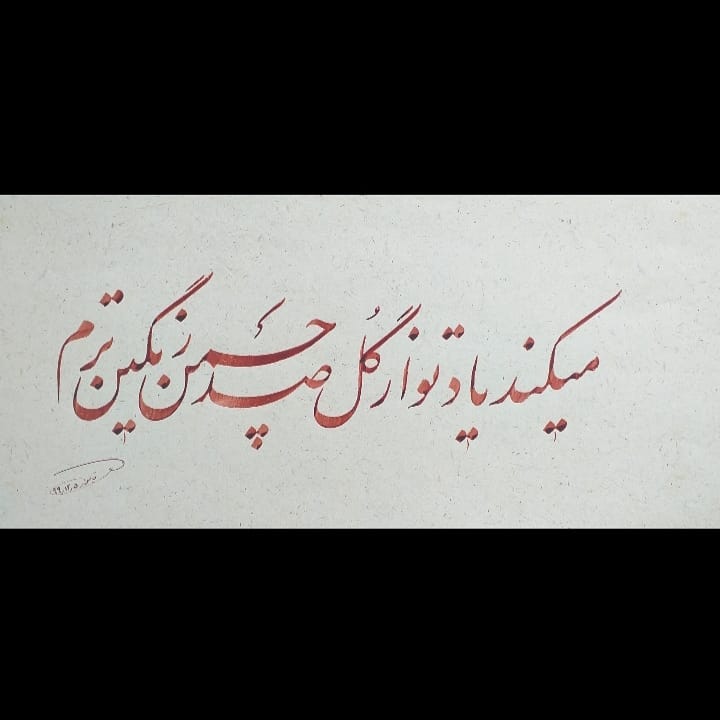 میکند یاد تو از گُل صد چمن رنگین ترم